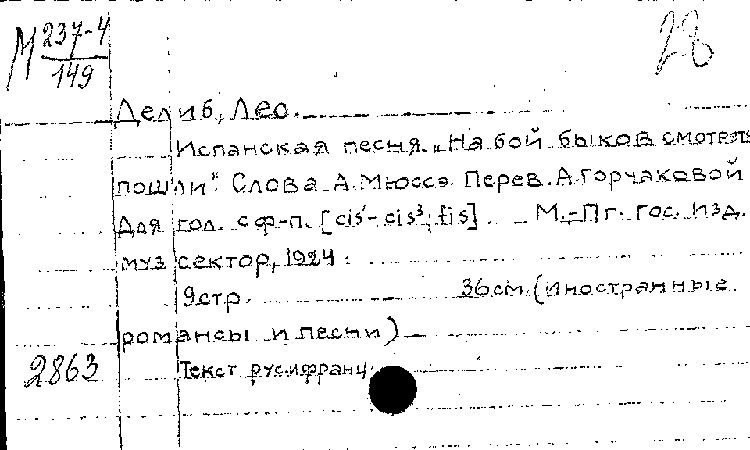 М 237-4
149
28
Делиб, Лео.
Испанская песня. „На бой быков смотреть
пошли“ Слова А. Мюссэ Перев. А. Горчаковой
Для гол. с ф-п. [cis¹-cis³; fis] М.-Пг. гос. изд.
муз сектор, 1924.
9стр. 36см. (Иностранные
романсы и песни)
2863 Текст рус. и франц.